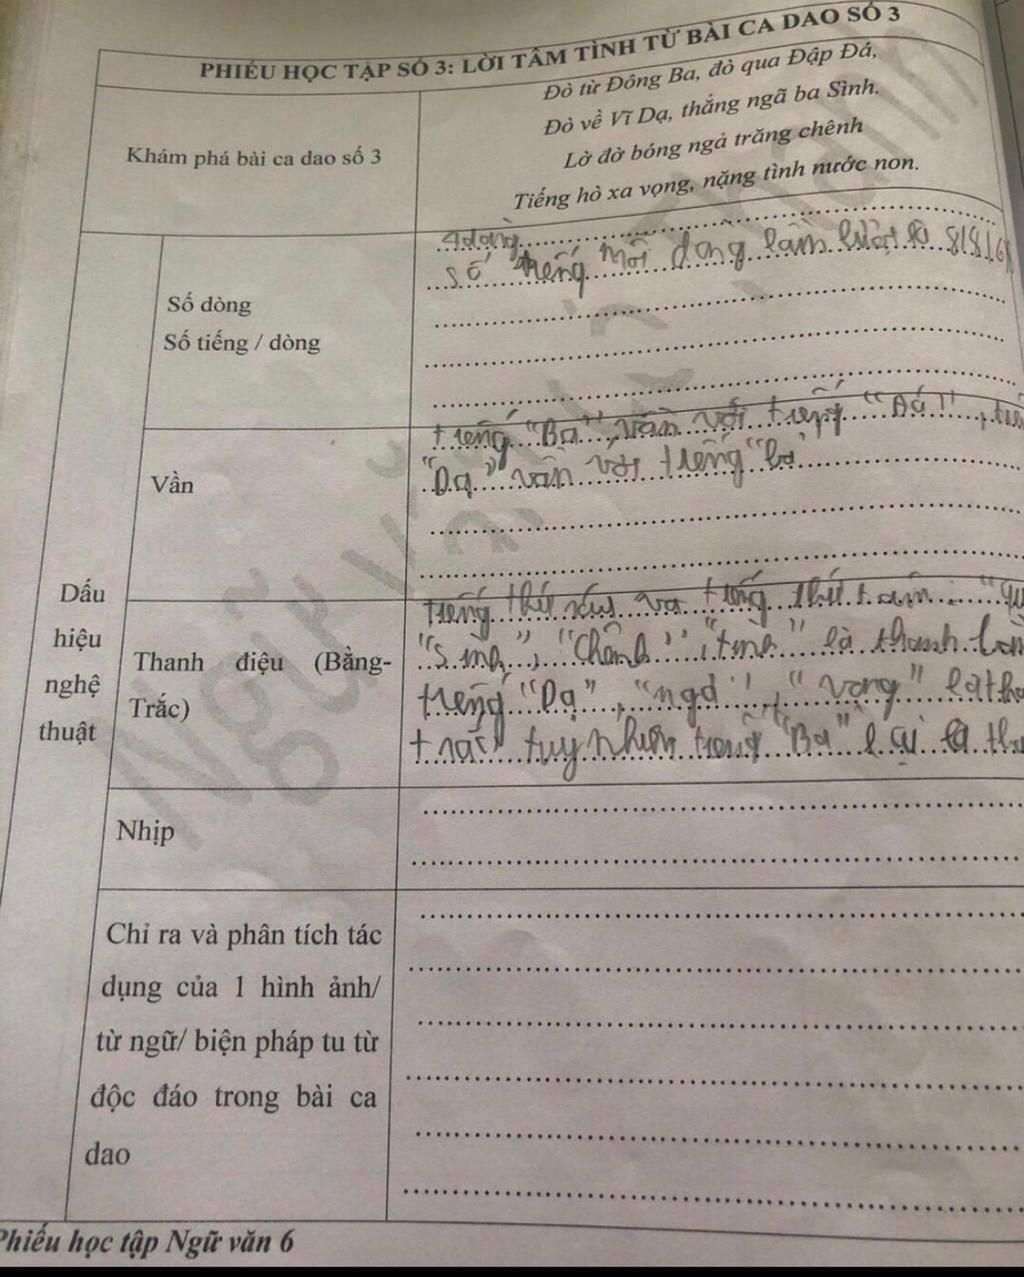 PHIẾU HỌC TẬP SỐ 3: LỜI TÂM TÌNH TỪ BÀI CA DAO SỐ 3
Khám phá bài ca dao số 3
Đò từ Đông Ba, đò qua Đập Đá,
Đò về Vĩ Dạ, thẳng ngã ba Sình.
Lờ đờ bóng ngả trăng chênh
Tiếng hò xa vọng, nặng tình nước non.
Dấu hiệu nghệ thuật
Số dòng
Số tiếng / dòng
4 dòng
số tiếng mỗi dòng lần lượt là 8/8/6/8
Vần
tiếng "Ba" vần với tiếng "Đá",
"Dạ" vần với tiếng "ba"
Thanh điệu (Bằng-
Trắc)
tiếng thứ sáu và tiếng thứ tám:
"Sình", "Chênh", "tình" là thanh
tiếng "Dạ", "ngả", "vọng" là
trắc tuy nhiên tiếng "Ba" lại là
Nhịp
Chỉ ra và phân tích tác
dụng của 1 hình ảnh/
từ ngữ/ biện pháp tu từ
độc đáo trong bài ca
dao
Phiếu học tập Ngữ văn 6